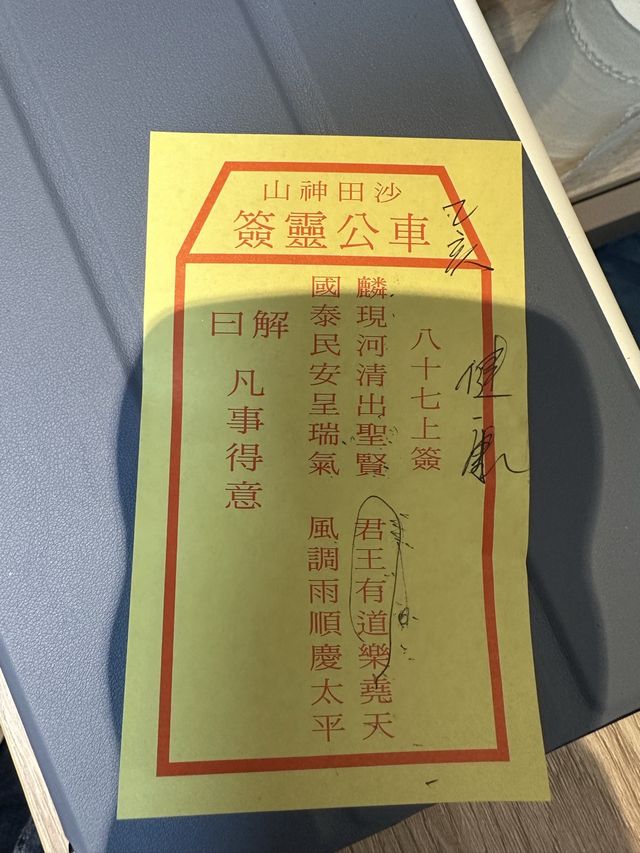 沙田神山
車公靈簽
乙亥
健康
八十七上簽
麟現河清出聖賢　君王有道樂堯天
國泰民安呈瑞氣　風調雨順慶太平
解曰
凡事得意